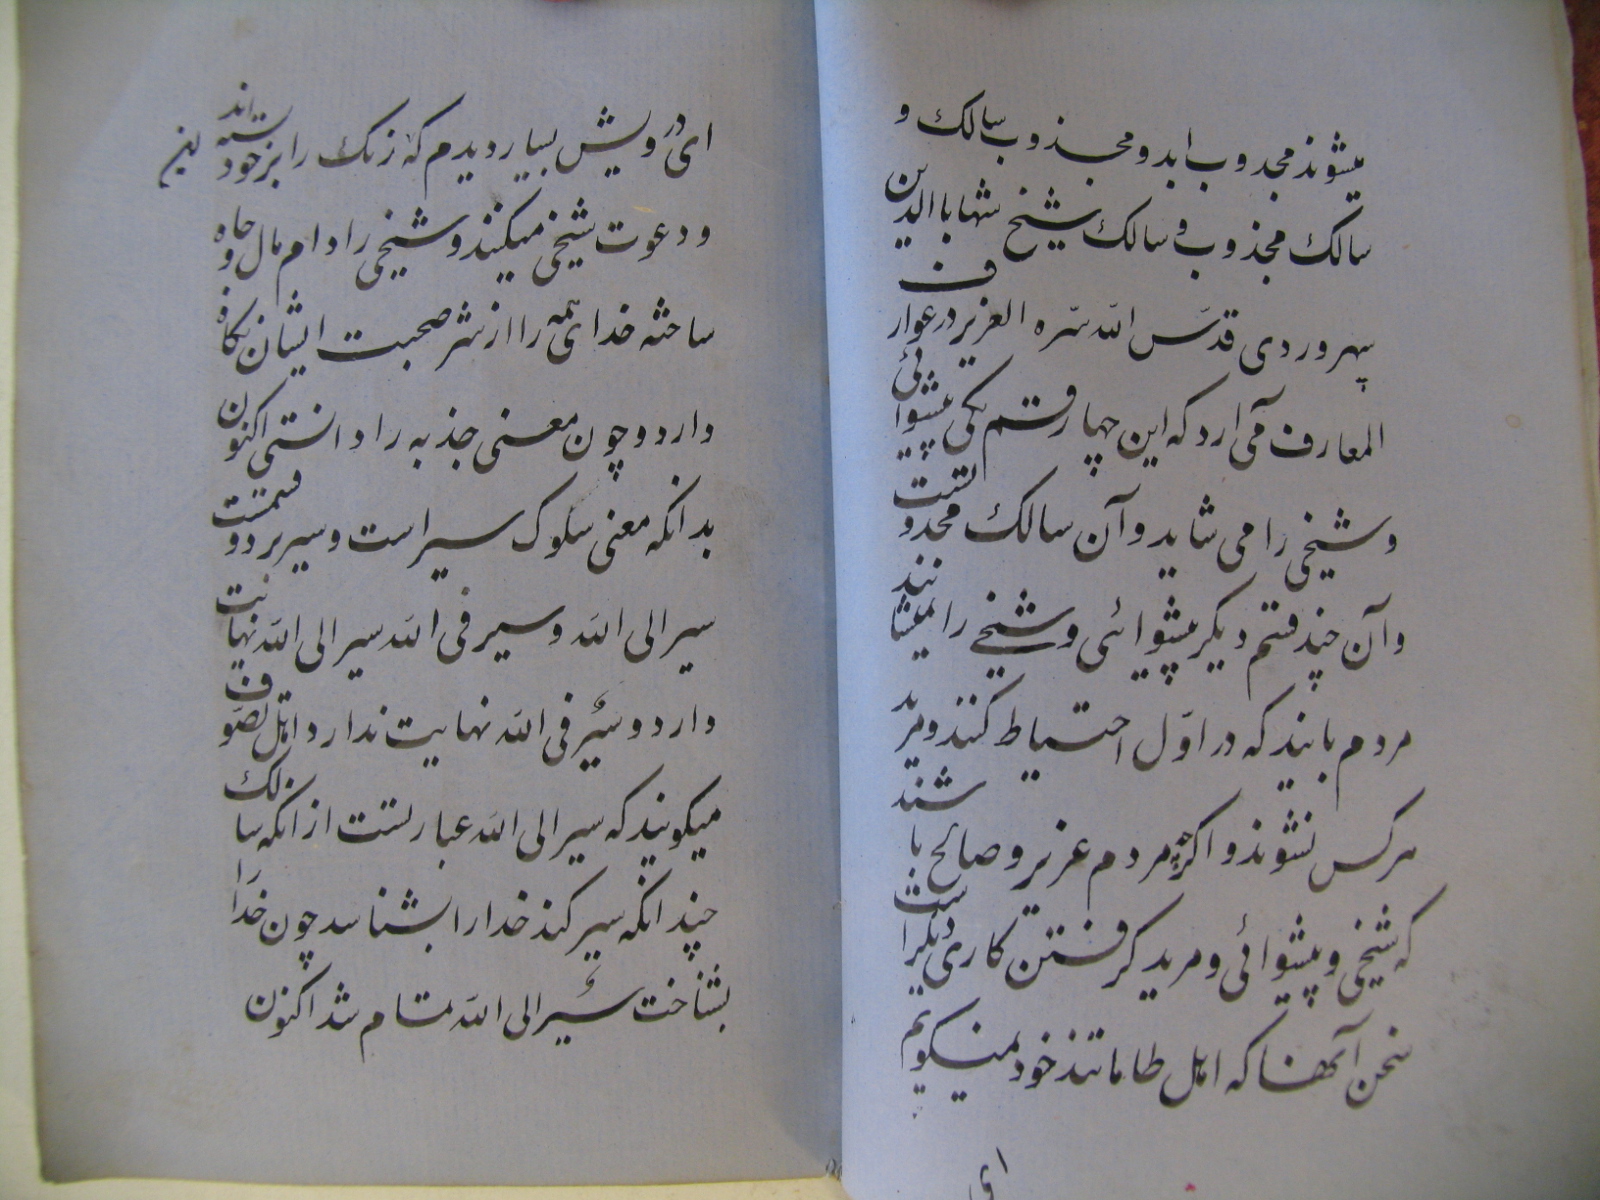 میشوند مجذوب ابد و مجذوب سالک و
سالک مجذوب و سالک شیخ شهاباالدین
سهروردی قدّس اللّه سرّه العزیز در عوارف
المعارف می آرد که این چهار قسم یکی پیشوائی
و شیخی را می شاید و آن سالک مجذوبست
و آن چند قسم دیگر پیشوائی و شیخی را نمیشایند
مردم بایند که در اوّل احتیاط کنند و مرید
هرکس نشوند و اگرچه مردم عزیز و صالح باشند
که شیخی و پیشوائی و مرید گرفتن کاری دیگر است
سخن آنها که اهل طاماتند خود نمیگویم
ای
ای درویش بسیار دیدم که زنک را بر خود بسته اند
و دعوت شیخی میکنند و شیخی را دام مال و جاه
ساخته خدای همه را از شر صحبت ایشان نگاه
دارد و چون معنی جذبه را دانستی اکنون
بدانکه معنی سلوک سیر است و سیر بر دو قسمست
سیر الی اللّه و سیر فی اللّه سیر الی اللّه نهایت
دارد و سیر فی اللّه نهایت ندارد اهل تصوّف
میگویند که سیر الی اللّه عبارتست از آنکه سالک
چندانکه سیر کند خدا را بشناسد چون خدا را
بشناخت سیر الی اللّه تمام شد اکنون